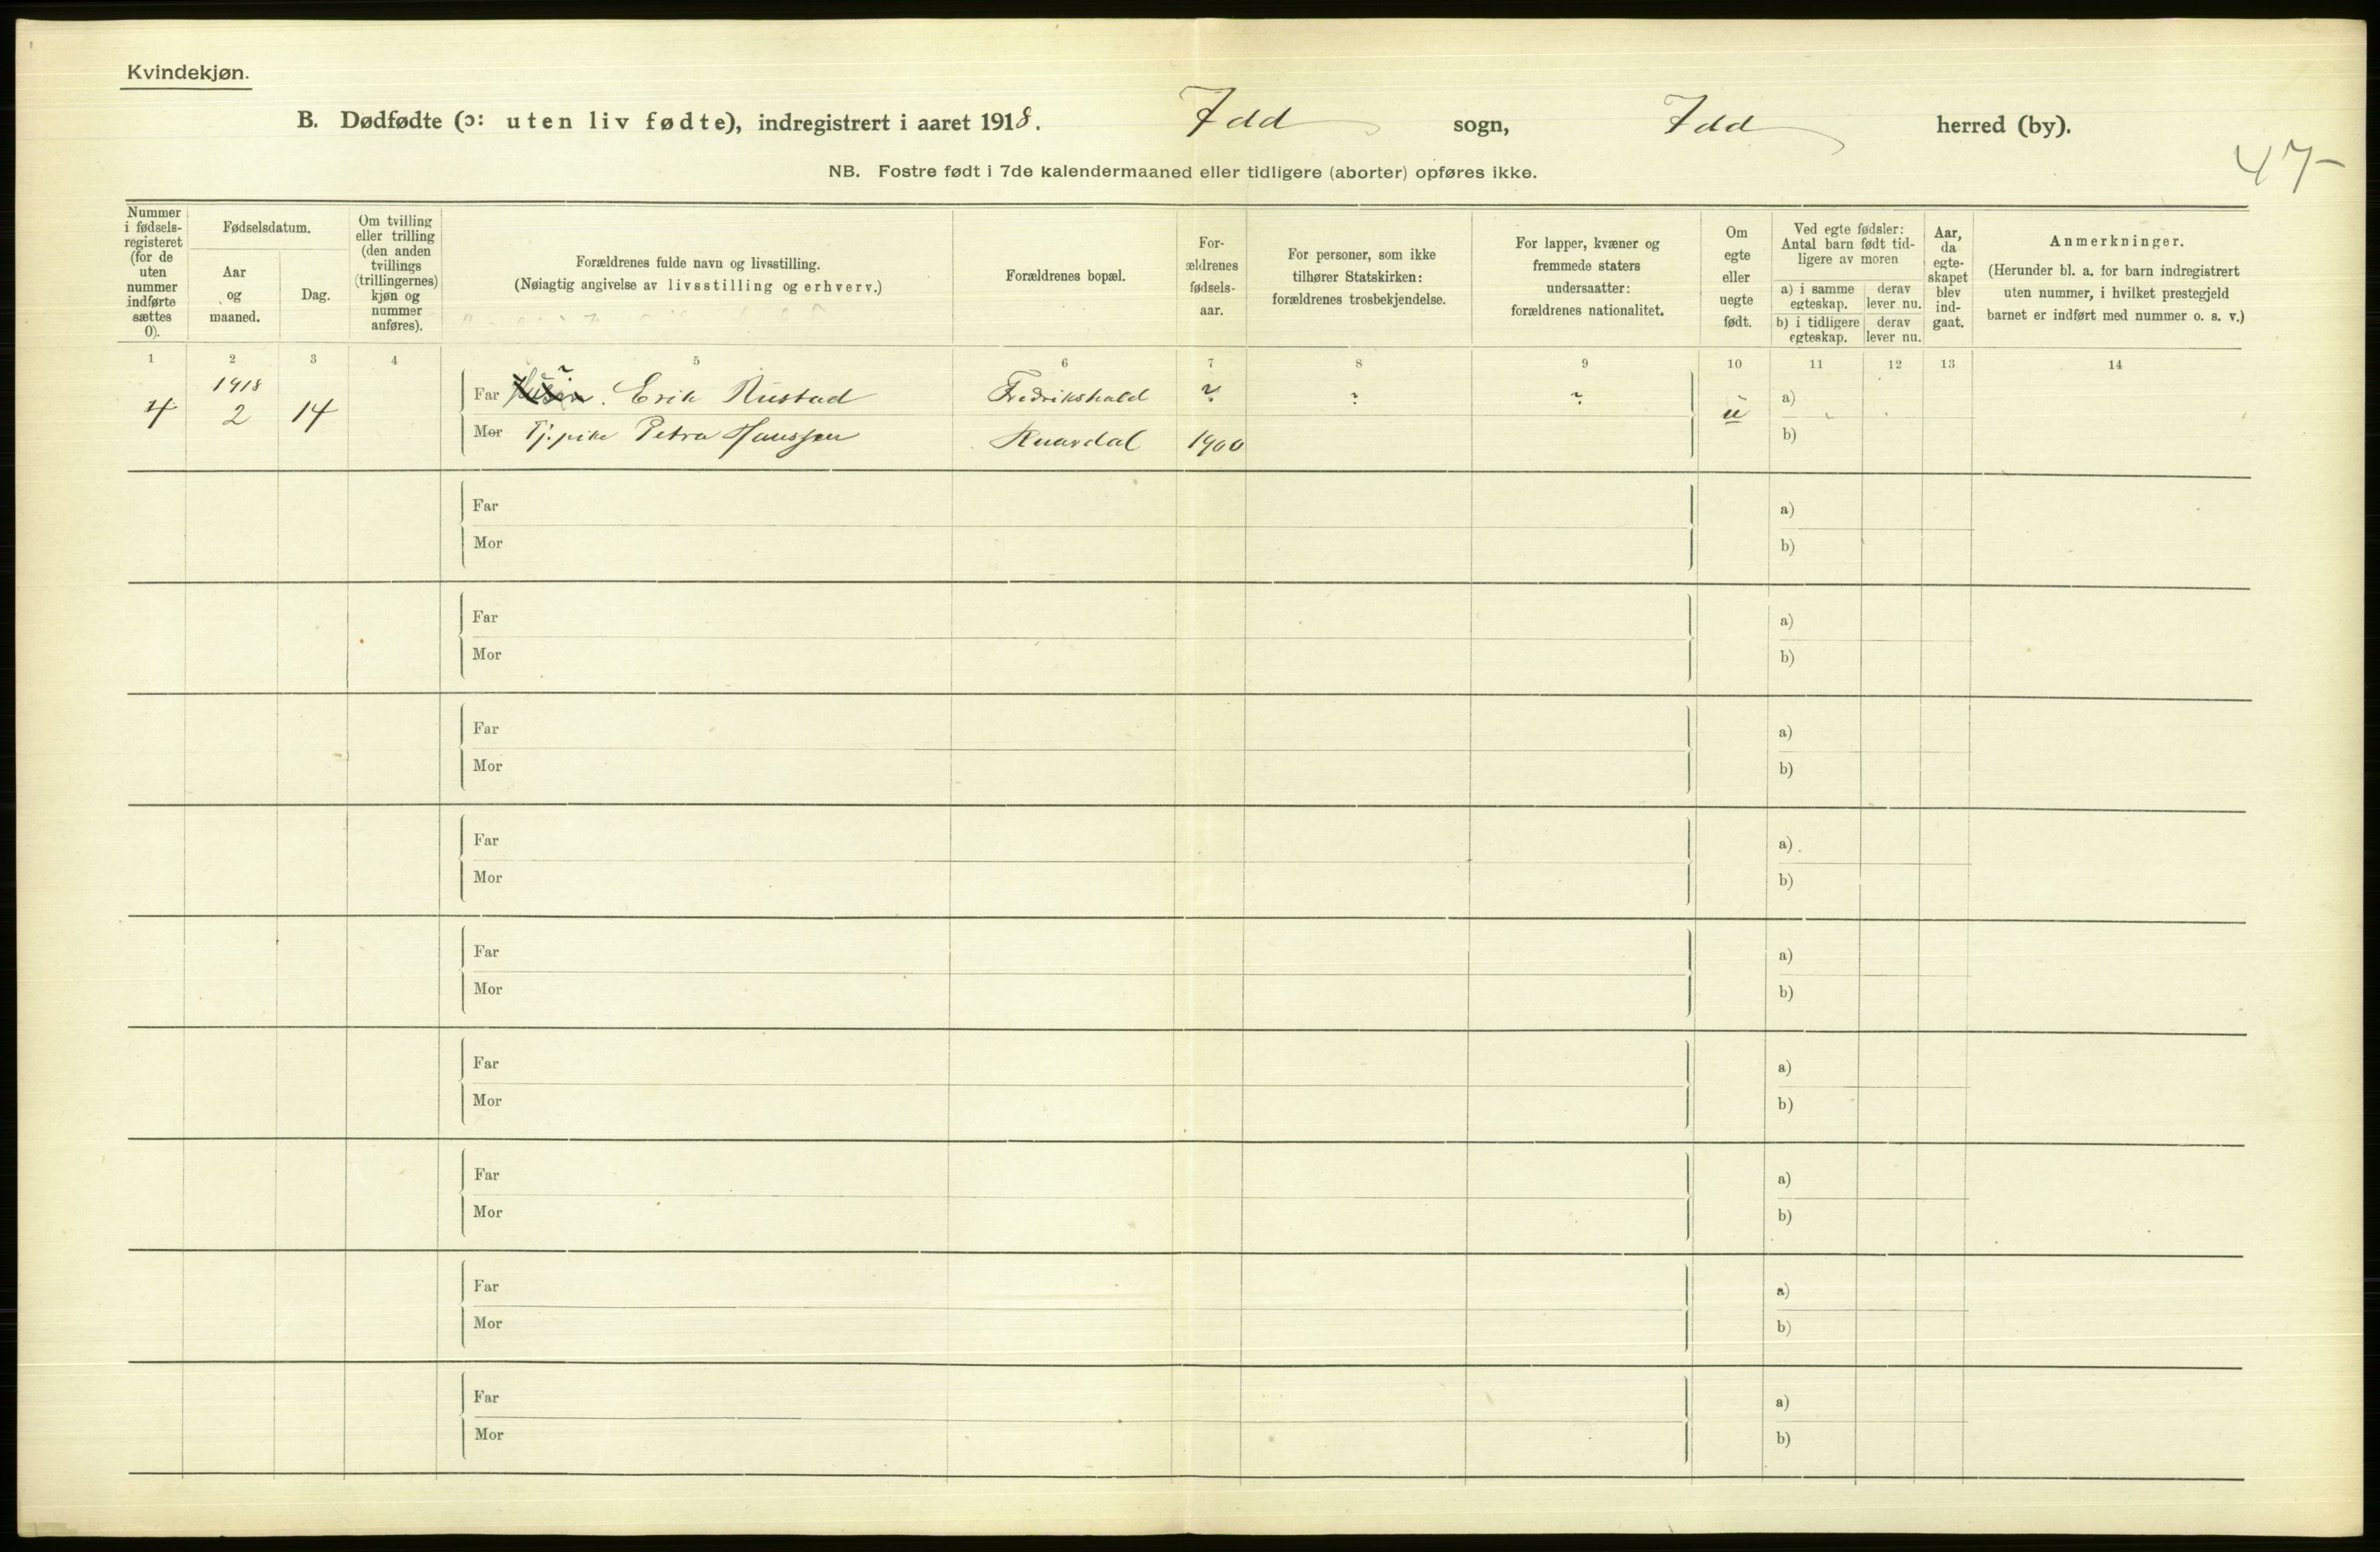 Kvindekjøn.
B. Dødfødte (ɔ: uten liv fødte), indregistrert i aaret 1918. Idd sogn, Idd herred (by).
47-
NB. Fostre født i 7de kalendermaaned eller tidligere (aborter) opføres ikke.
Nummer i fødsels-registeret (for de uten nummer indførte sættes 0).
Fødselsdatum.
Aar og maaned.
Dag.
Om tvilling eller trilling (den anden tvillings (trillingernes) kjøn og nummer anføres).
Forældrenes fulde navn og livsstilling.
(Nøiagtig angivelse av livsstilling og erhverv.)
Forældrenes bopæl.
For-ældrenes fødsels-aar.
For personer, som ikke tilhører Statskirken: forældrenes trosbekjendelse.
For lapper, kvæner og fremmede staters undersaatter: forældrenes nationalitet.
Om egte eller uegte født.
Ved egte fødsler: Antal barn født tid-ligere av moren
a) i samme egteskap.
derav lever nu.
b) i tidligere egteskap.
derav lever nu.
Aar, da egte-skapet blev ind-gaat.
Anmerkninger.
(Herunder bl. a. for barn indregistrert uten nummer, i hvilket prestegjeld barnet er indført med nummer o. s. v.)
1 2 3 4 5 6 7 8 9 10 11 12 13 14
1918
4 2 14 Far ? Erik Rustad Fredrikshald ? ? ? u a)
Mor Tj.pike Petra Hanssen 1900 b)
Far a)
Mor b)
Far a)
Mor b)
Far a)
Mor b)
Far a)
Mor b)
Far a)
Mor b)
Far a)
Mor b)
Far a)
Mor b)
Far a)
Mor b)
Far a)
Mor b)